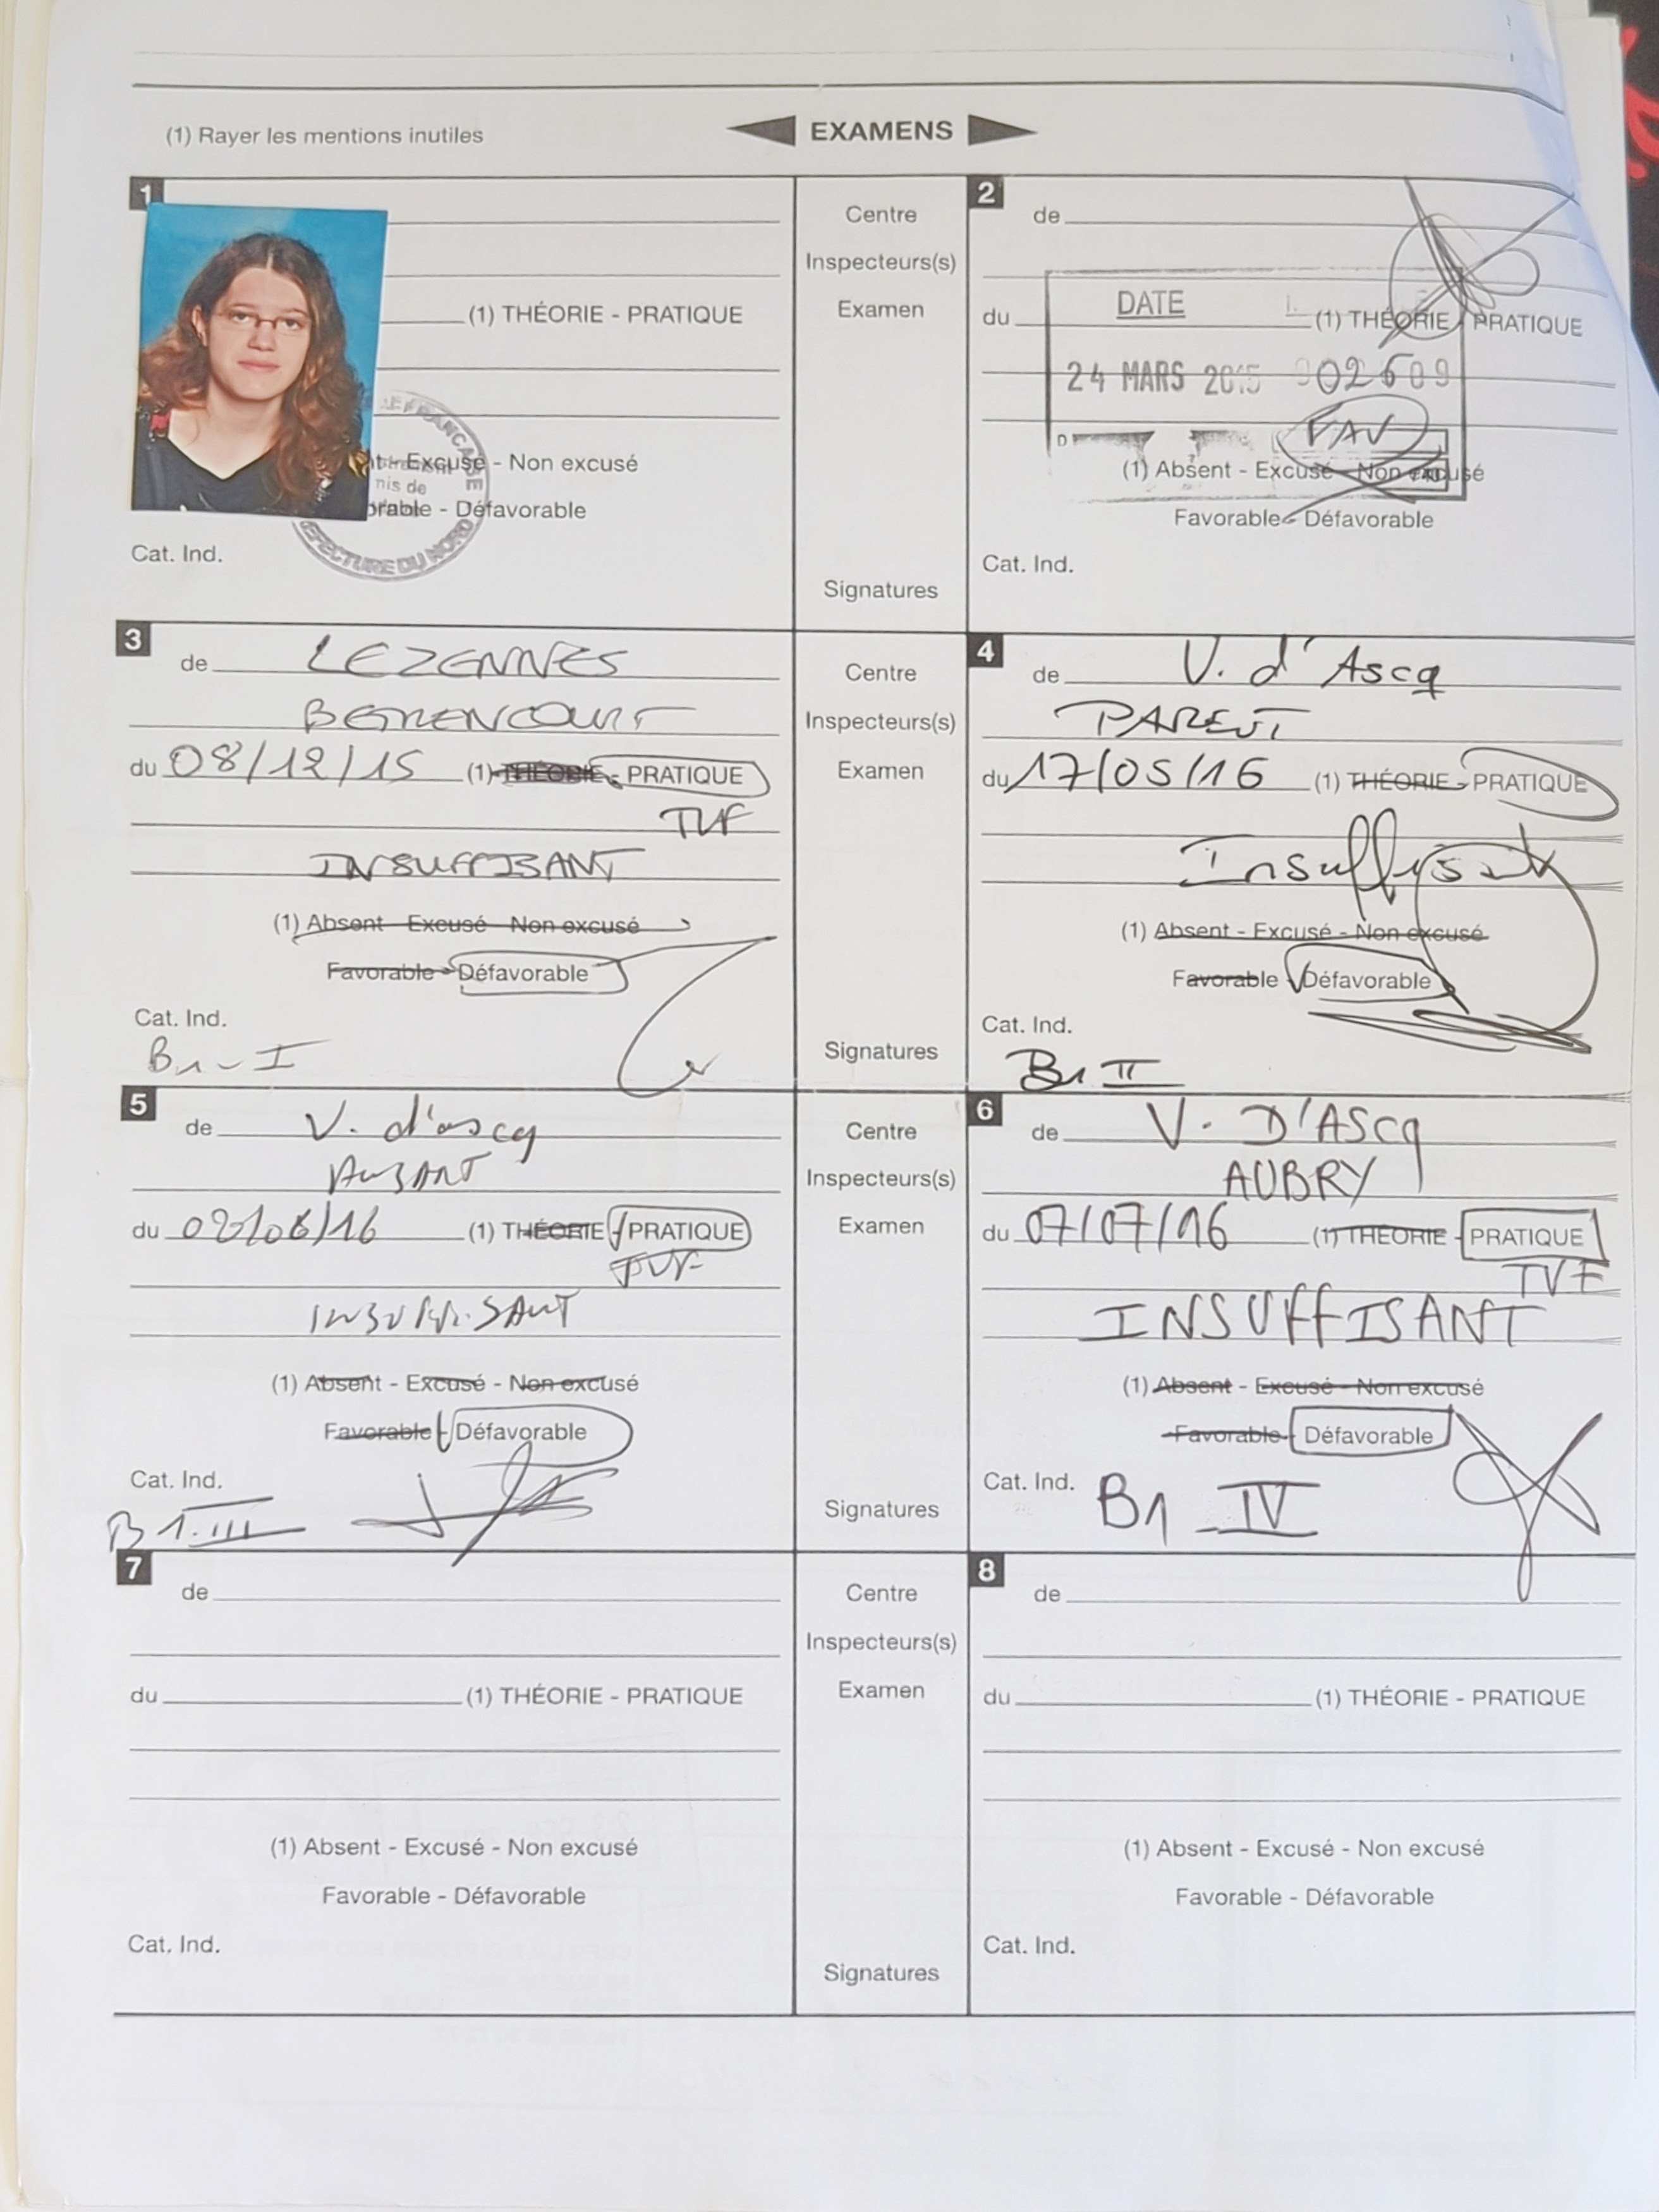 (1) Rayer les mentions inutiles
EXAMENS
1
(1) THÉORIE - PRATIQUE
Excusé - Non excusé
Défavorable
Cat. Ind.
PRÉFECTURE DU NORD
Centre
Inspecteurs(s)
Examen
Signatures
2
de
du
(1) THÉORIE PRATIQUE
DATE
24 MARS 2015
FAV
(1) Absent - Excusé - Non excusé
Favorable - Défavorable
Cat. Ind.
3
de LEZENNES
BETRENCOURT
du 08/12/15 (1) THÉORIE - PRATIQUE
INSUFFISANT
(1) Absent - Excusé - Non excusé
Favorable - Défavorable
Cat. Ind.
B1 - I
Centre
Inspecteurs(s)
Examen
Signatures
4
de V. d'Ascq
PARENT
du 17/05/16 (1) THÉORIE - PRATIQUE
Insuffisant
(1) Absent - Excusé - Non excusé
Favorable Défavorable
Cat. Ind.
B1 II
5
de V. d'ascq
du (1) THÉORIE - PRATIQUE
INSUFFISANT
(1) Absent - Excusé - Non excusé
Favorable - Défavorable
Cat. Ind.
B1 III
Centre
Inspecteurs(s)
Examen
Signatures
6
de V. D'ASCQ
AUBRY
du 07/07/16 (1) THÉORIE - PRATIQUE
TVF
INSUFFISANT
(1) Absent - Excusé - Non excusé
Favorable - Défavorable
Cat. Ind. B1 IV
7
de
du (1) THÉORIE - PRATIQUE
(1) Absent - Excusé - Non excusé
Favorable - Défavorable
Cat. Ind.
Centre
Inspecteurs(s)
Examen
Signatures
8
de
du (1) THÉORIE - PRATIQUE
(1) Absent - Excusé - Non excusé
Favorable - Défavorable
Cat. Ind.